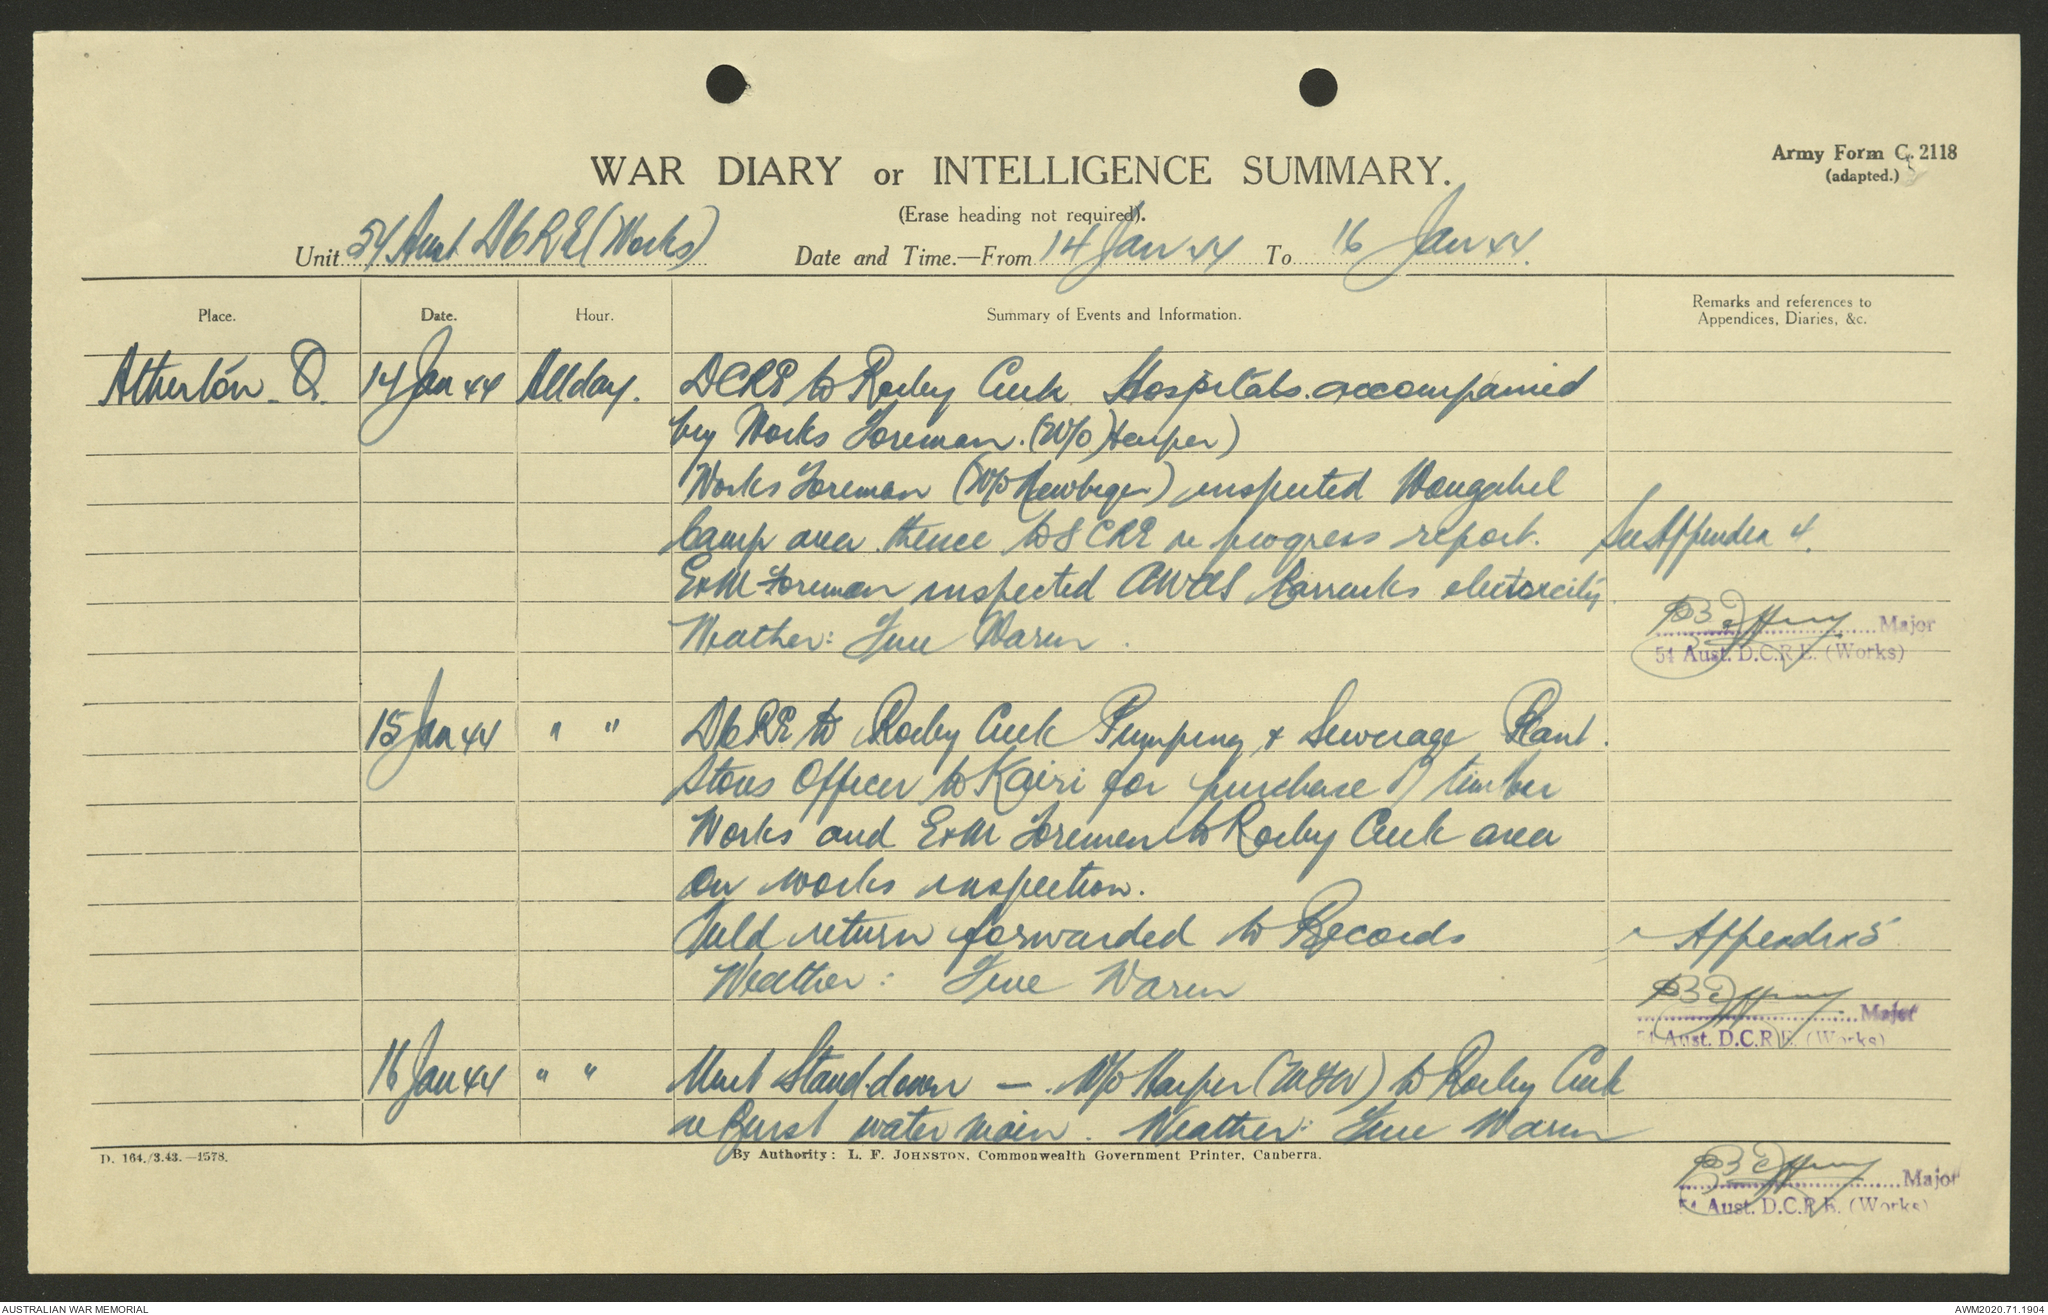 WAR DIARY or INTELLIGENCE SUMMARY.
Army Form C. 2118
(adapted.)
(Erase heading not required).
Unit 54 Aust DCRE (Works) Date and Time.—From 14 Jan 44 To 16 Jan 44.
Place. Date. Hour. Summary of Events and Information. Remarks and references to
Appendices, Diaries, &c.
Atherton Q. 14 Jan 44 All day. DCRE to Rocky Creek Hospitals. accompanied
by Works Foreman. (W/O Harper)
Works Foreman (W/O) inspected Wongabel
Camp area thence to CRE re progress report. See Appendix 4.
E&M Foreman inspected AWAS Barracks electricity
Weather: Fine Warm.
Major
54 Aust. D.C.R.E. (Works)
15 Jan 44 " " DCRE to Rocky Creek Pumping & Sewerage Plant.
Stores Officer to Kairi for purchase of timber
Works and E&M Foremen to Rocky Creek area
on works inspection.
Field return forwarded to Records " Appendix 5
Weather: Fine Warm
Major
54 Aust. D.C.R.E. (Works)
16 Jan 44 " " Unit Stand down — W/O Harper to Rocky Creek
re Burst water main. Weather: Fine Warm
D. 164./3.43.—1578.
By Authority: L. F. JOHNSTON, Commonwealth Government Printer, Canberra.
Major
54 Aust. D.C.R.E. (Works)
AUSTRALIAN WAR MEMORIAL
AWM2020.71.1904